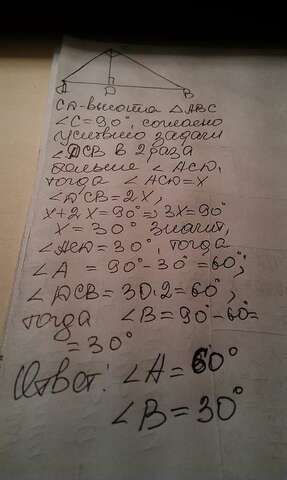 A D B
CD-высота △ABC
∠C=90°, согласно
условию задачи
∠DCB в 2 раза
больше ∠ACD,
тогда ∠ACD=x
∠DCB=2x,
x+2x=90°=>3x=90°
x=30° Значит,
∠ACD=30°, тогда
∠A = 90°-30°=60°;
∠DCB=30·2=60°,
тогда ∠B=90°-60°=
=30°
Ответ: ∠A=60°
∠B=30°